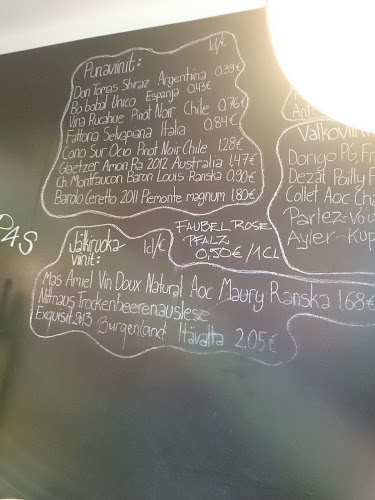 Punaviinit: 1cl/€
Don Tomas Shiraz Argentina 0.39€
Bo bobal Unico Espanja 0.43€
Vina Rucahue Pinot Noir Chile 0.76€
Fattoria Selvapiana Italia 0.84€
Cono Sur Ocio Pinot Noir Chile 1.28€
Glaetzer Amon Ra 2012 Australia 1.47€
Ch Montfaucon Baron Louis Ranska 0.90€
Barolo Ceretto 2011 Piemonte magnum 1.80€
Valkovii
Dorigo PG, Fr
Dezát Pouilly F
Collet Aoc Cha
Parlez-Vou
Ayler-Kup
FAUBEL ROSE
PFALZ
0,50€/1CL
PAS
Jälkiruoka
viinit: 1cl/€
Mas Amiel Vin Doux Natural Aoc Maury Ranska 1.68€
Nittnaus Trockenbeerenauslese
Exquisit 2013 Burgenland Itävalta 2.05€